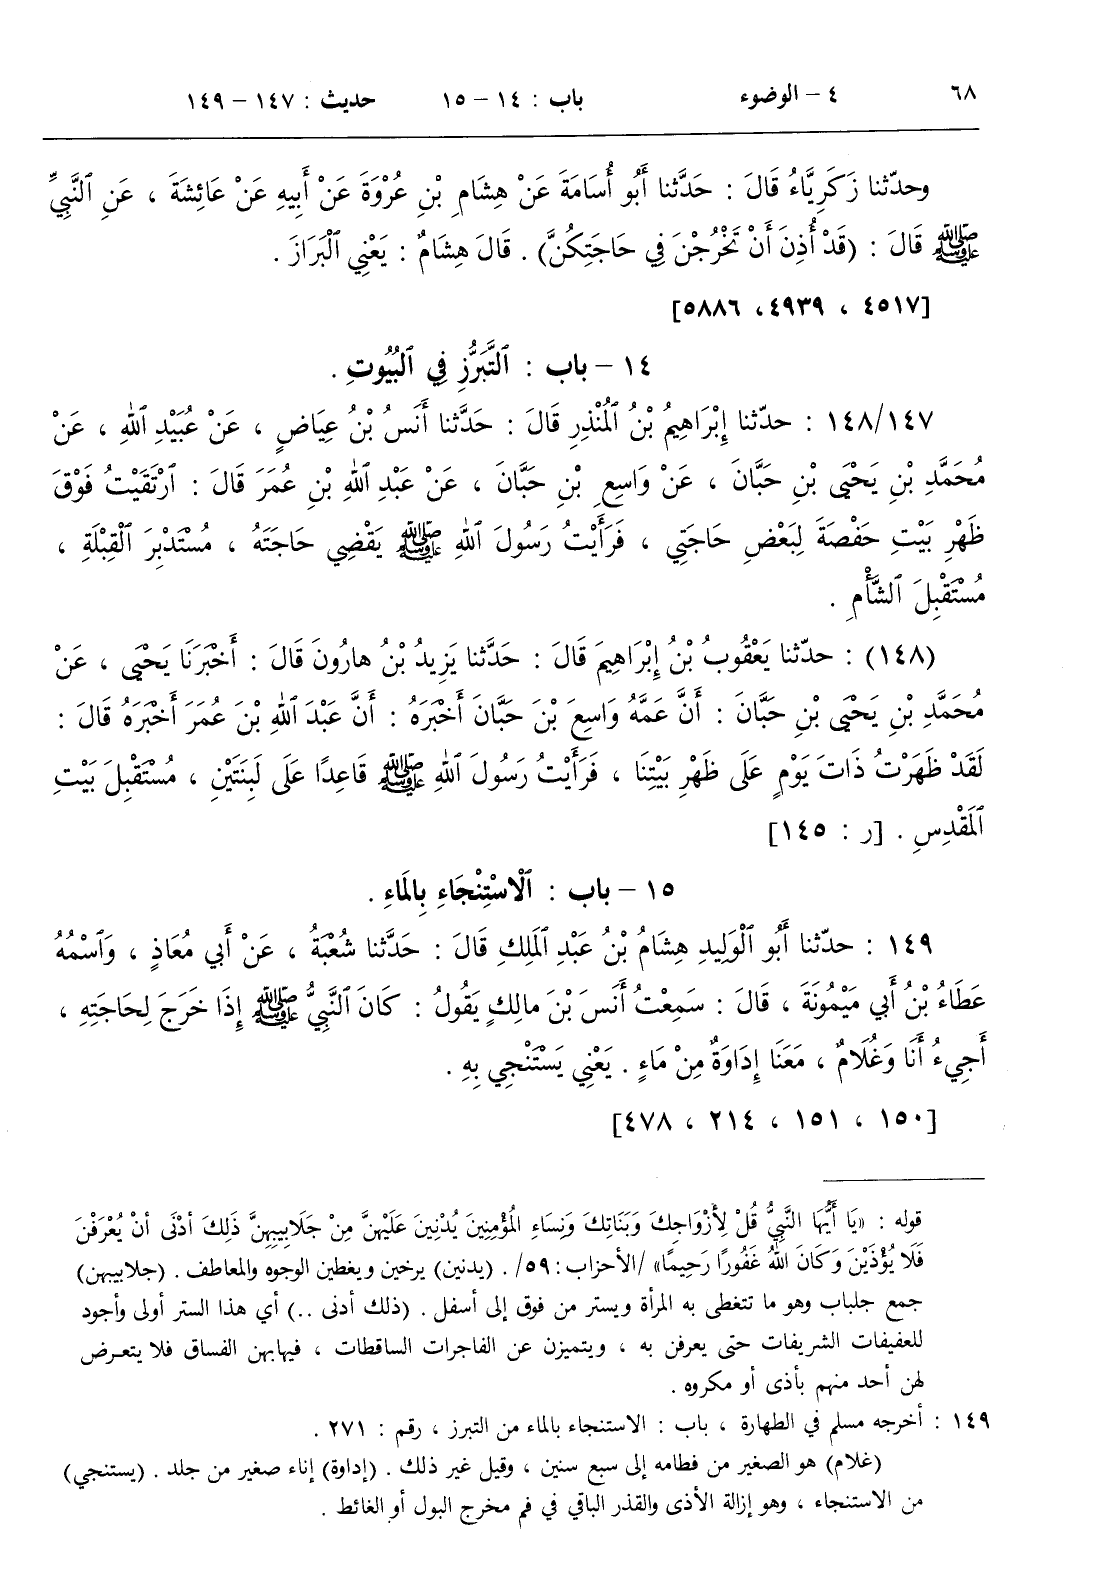 ٦٨ ٤ – الوضوء باب : ١٤ – ١٥ حديث : ١٤٧ – ١٤٩
وحدّثنا زَكَرِيَّاءُ قَالَ : حَدَّثنا أَبُو أُسَامَةَ عَنْ هِشَامِ بْنِ عُرْوَةَ عَنْ أَبِيهِ عَنْ عَائِشَةَ ، عَنِ ٱلنَّبِيِّ
ﷺ قَالَ : (قَدْ أُذِنَ أَنْ تَخْرُجْنَ فِي حَاجَتِكُنَّ) . قَالَ هِشَامٌ : يَعْنِي ٱلْبَرَازَ .
[٤٥١٧ ، ٤٩٣٩، ٥٨٨٦]
١٤ – باب : ٱلتَّبَرُّزِ فِي ٱلْبُيُوتِ .
١٤٨/١٤٧ : حدّثنا إِبْرَاهِيمُ بْنُ ٱلْمُنْذِرِ قَالَ : حَدَّثنا أَنَسُ بْنُ عِيَاضٍ ، عَنْ عُبَيْدِ ٱللهِ ، عَنْ
مُحَمَّدِ بْنِ يَحْيَى بْنِ حَبَّانَ ، عَنْ وَاسِعِ بْنِ حَبَّانَ ، عَنْ عَبْدِ ٱللهِ بْنِ عُمَرَ قَالَ : ٱرْتَقَيْتُ فَوْقَ
ظَهْرِ بَيْتِ حَفْصَةَ لِبَعْضِ حَاجَتِي ، فَرَأَيْتُ رَسُولَ ٱللهِ ﷺ يَقْضِي حَاجَتَهُ ، مُسْتَدْبِرَ ٱلْقِبْلَةِ ،
مُسْتَقْبِلَ ٱلشَّأْمِ .
(١٤٨) : حدّثنا يَعْقُوبُ بْنُ إِبْرَاهِيمَ قَالَ : حَدَّثنا يَزِيدُ بْنُ هارُونَ قَالَ : أَخْبَرَنَا يَحْيَى ، عَنْ
مُحَمَّدِ بْنِ يَحْيَى بْنِ حَبَّانَ : أَنَّ عَمَّهُ وَاسِعَ بْنَ حَبَّانَ أَخْبَرَهُ : أَنَّ عَبْدَ ٱللهِ بْنَ عُمَرَ أَخْبَرَهُ قَالَ :
لَقَدْ ظَهَرْتُ ذَاتَ يَوْمٍ عَلَى ظَهْرِ بَيْتِنَا ، فَرَأَيْتُ رَسُولَ ٱللهِ ﷺ قَاعِدًا عَلَى لَبِنَتَيْنِ ، مُسْتَقْبِلَ بَيْتِ
ٱلمَقْدِسِ . [ر : ١٤٥]
١٥ – باب : ٱلْاسْتِنْجَاءِ بِالمَاءِ .
١٤٩ : حدّثنا أَبُو ٱلْوَلِيدِ هِشَامُ بْنُ عَبْدِ ٱلمَلِكِ قَالَ : حَدَّثنا شُعْبَةُ ، عَنْ أَبِي مُعَاذٍ ، وَٱسْمُهُ
عَطَاءُ بْنُ أَبِي مَيْمُونَةَ ، قَالَ : سَمِعْتُ أَنَسَ بْنَ مالِكٍ يَقُولُ : كَانَ ٱلنَّبِيُّ ﷺ إِذَا خَرَجَ لِحَاجَتِهِ ،
أَجِيءُ أَنَا وَغُلَامٌ ، مَعَنَا إِدَاوَةٌ مِنْ مَاءٍ . يَعْنِي يَسْتَنْجِي بِهِ .
[١٥٠ ، ١٥١ ، ٢١٤ ، ٤٧٨]
قوله : «يَا أَيُّهَا النَّبِيُّ قُلْ لِأَزْوَاجِكَ وَبَنَاتِكَ وَنِسَاءِ المُؤْمِنِينَ يُدْنِينَ عَلَيْهِنَّ مِنْ جَلَابِيبِهِنَّ ذَلِكَ أَدْنَى أَنْ يُعْرَفْنَ
فَلَا يُؤْذَيْنَ وَكَانَ اللهُ غَفُورًا رَحِيمًا» /الأحزاب : ٥٩/ . (يدنين) يرخين ويغطين الوجوه والمعاطف . (جلابيبهن)
جمع جلباب وهو ما تتغطى به المرأة ويستر من فوق إلى أسفل . (ذلك أدنى ..) أي هذا الستر أولى وأجود
للعفيفات الشريفات حتى يعرفن به ، ويتميزن عن الفاجرات الساقطات ، فيهابهن الفساق فلا يتعرض
لهن أحد منهم بأذى أو مكروه .
١٤٩ : أخرجه مسلم في الطهارة ، باب : الاستنجاء بالماء من التبرز ، رقم : ٢٧١ .
(غلام) هو الصغير من فطامه إلى سبع سنين ، وقيل غير ذلك . (إداوة) إناء صغير من جلد . (يستنجي)
من الاستنجاء ، وهو إزالة الأذى والقذر الباقي في فم مخرج البول أو الغائط .